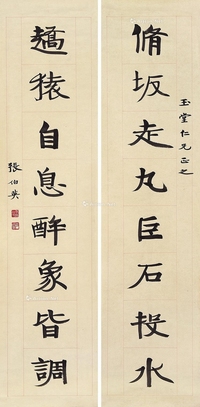 脩坂走丸巨石投水
玉堂仁兄正之
趫猿自息醉象皆調
張伯英